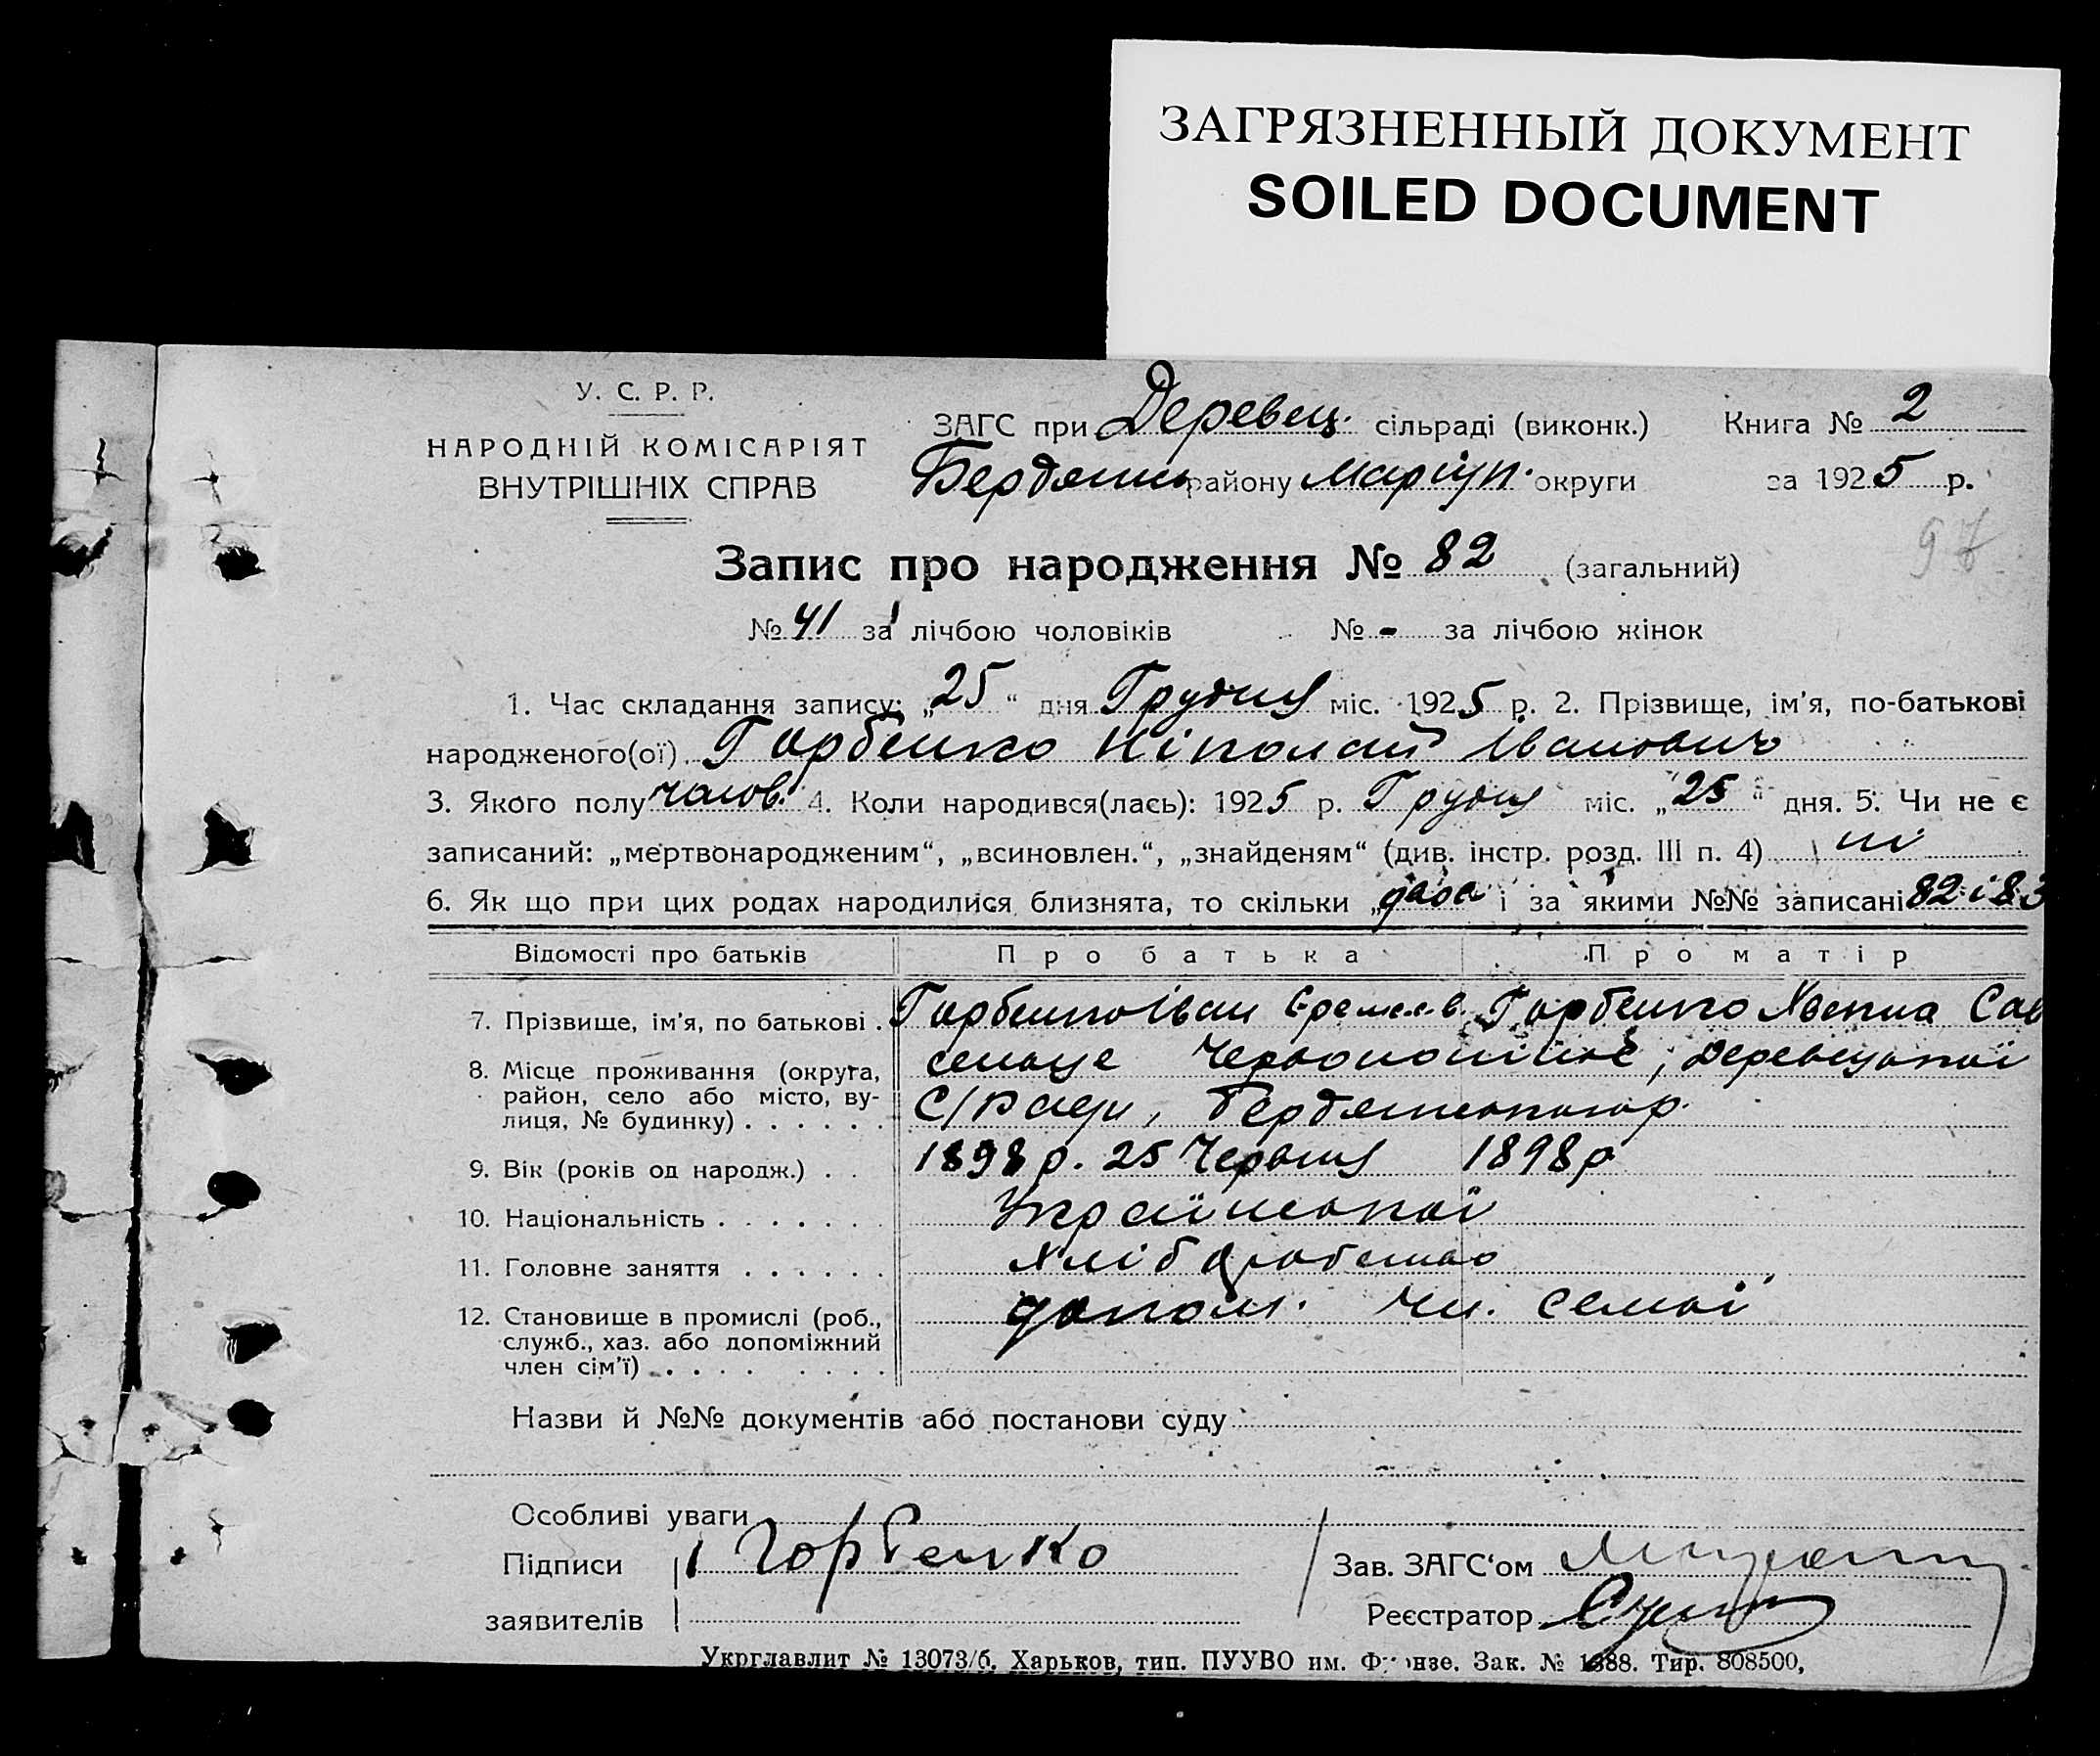 ЗАГРЯЗНЕННЫЙ ДОКУМЕНТ
SOILED DOCUMENT
У. С. Р. Р.
НАРОДНІЙ КОМІСАРІЯТ
ВНУТРІШНІХ СПРАВ
ЗАГС при Деревец. сільраді (виконк.) Книга № 2
Бердянськ району Маріуп. округи за 1925 р.
97
Запис про народження № 82 (загальний)
№ 41 за лічбою чоловіків № - за лічбою жінок
1. Час складання запису: „25“ дня Грудня міс. 1925 р. 2. Прізвище, ім’я, по-батькові
народженого(ої) Горбенко Ніколай Іванович
3. Якого полу чолов. 4. Коли народився(лась): 1925 р. Грудня міс. „25“ дня. 5. Чи не є
записаний: „мертвонародженим“, „всиновлен.“, „знайденям“ (див. інстр. розд. III п. 4) ні
6. Як що при цих родах народилися близнята, то скільки „два і за якими №№ записані 82 і 83
Відомості про батьків Про батька Про матір
7. Прізвище, ім’я, по батькові . Горбенко Іван Еремеев. Горбенко Сав
8. Місце проживання (округа, район, село або місто, вулиця, № будинку) . . . . . . селище Червонопільє, Деревецької
С/Ради, Бердянського р.
9. Вік (років од народж.) . . 1898 р. 25 Червня 1898 р
10. Національність . . . . . . . Української
11. Головне заняття . . . . . . Хліборобство
12. Становище в промислі (роб., служб., хаз. або допоміжний член сім’ї) . . . . допом. чл. семьі
Назви й №№ документів або постанови суду
Особливі уваги
Підписи Горбенко Зав. ЗАГС‘ом
заявителів Реєстратор
Укрглавлит № 13073/б. Харьков, тип. ПУУВО им. Фрунзе. Зак. № 1388. Тир. 808500,